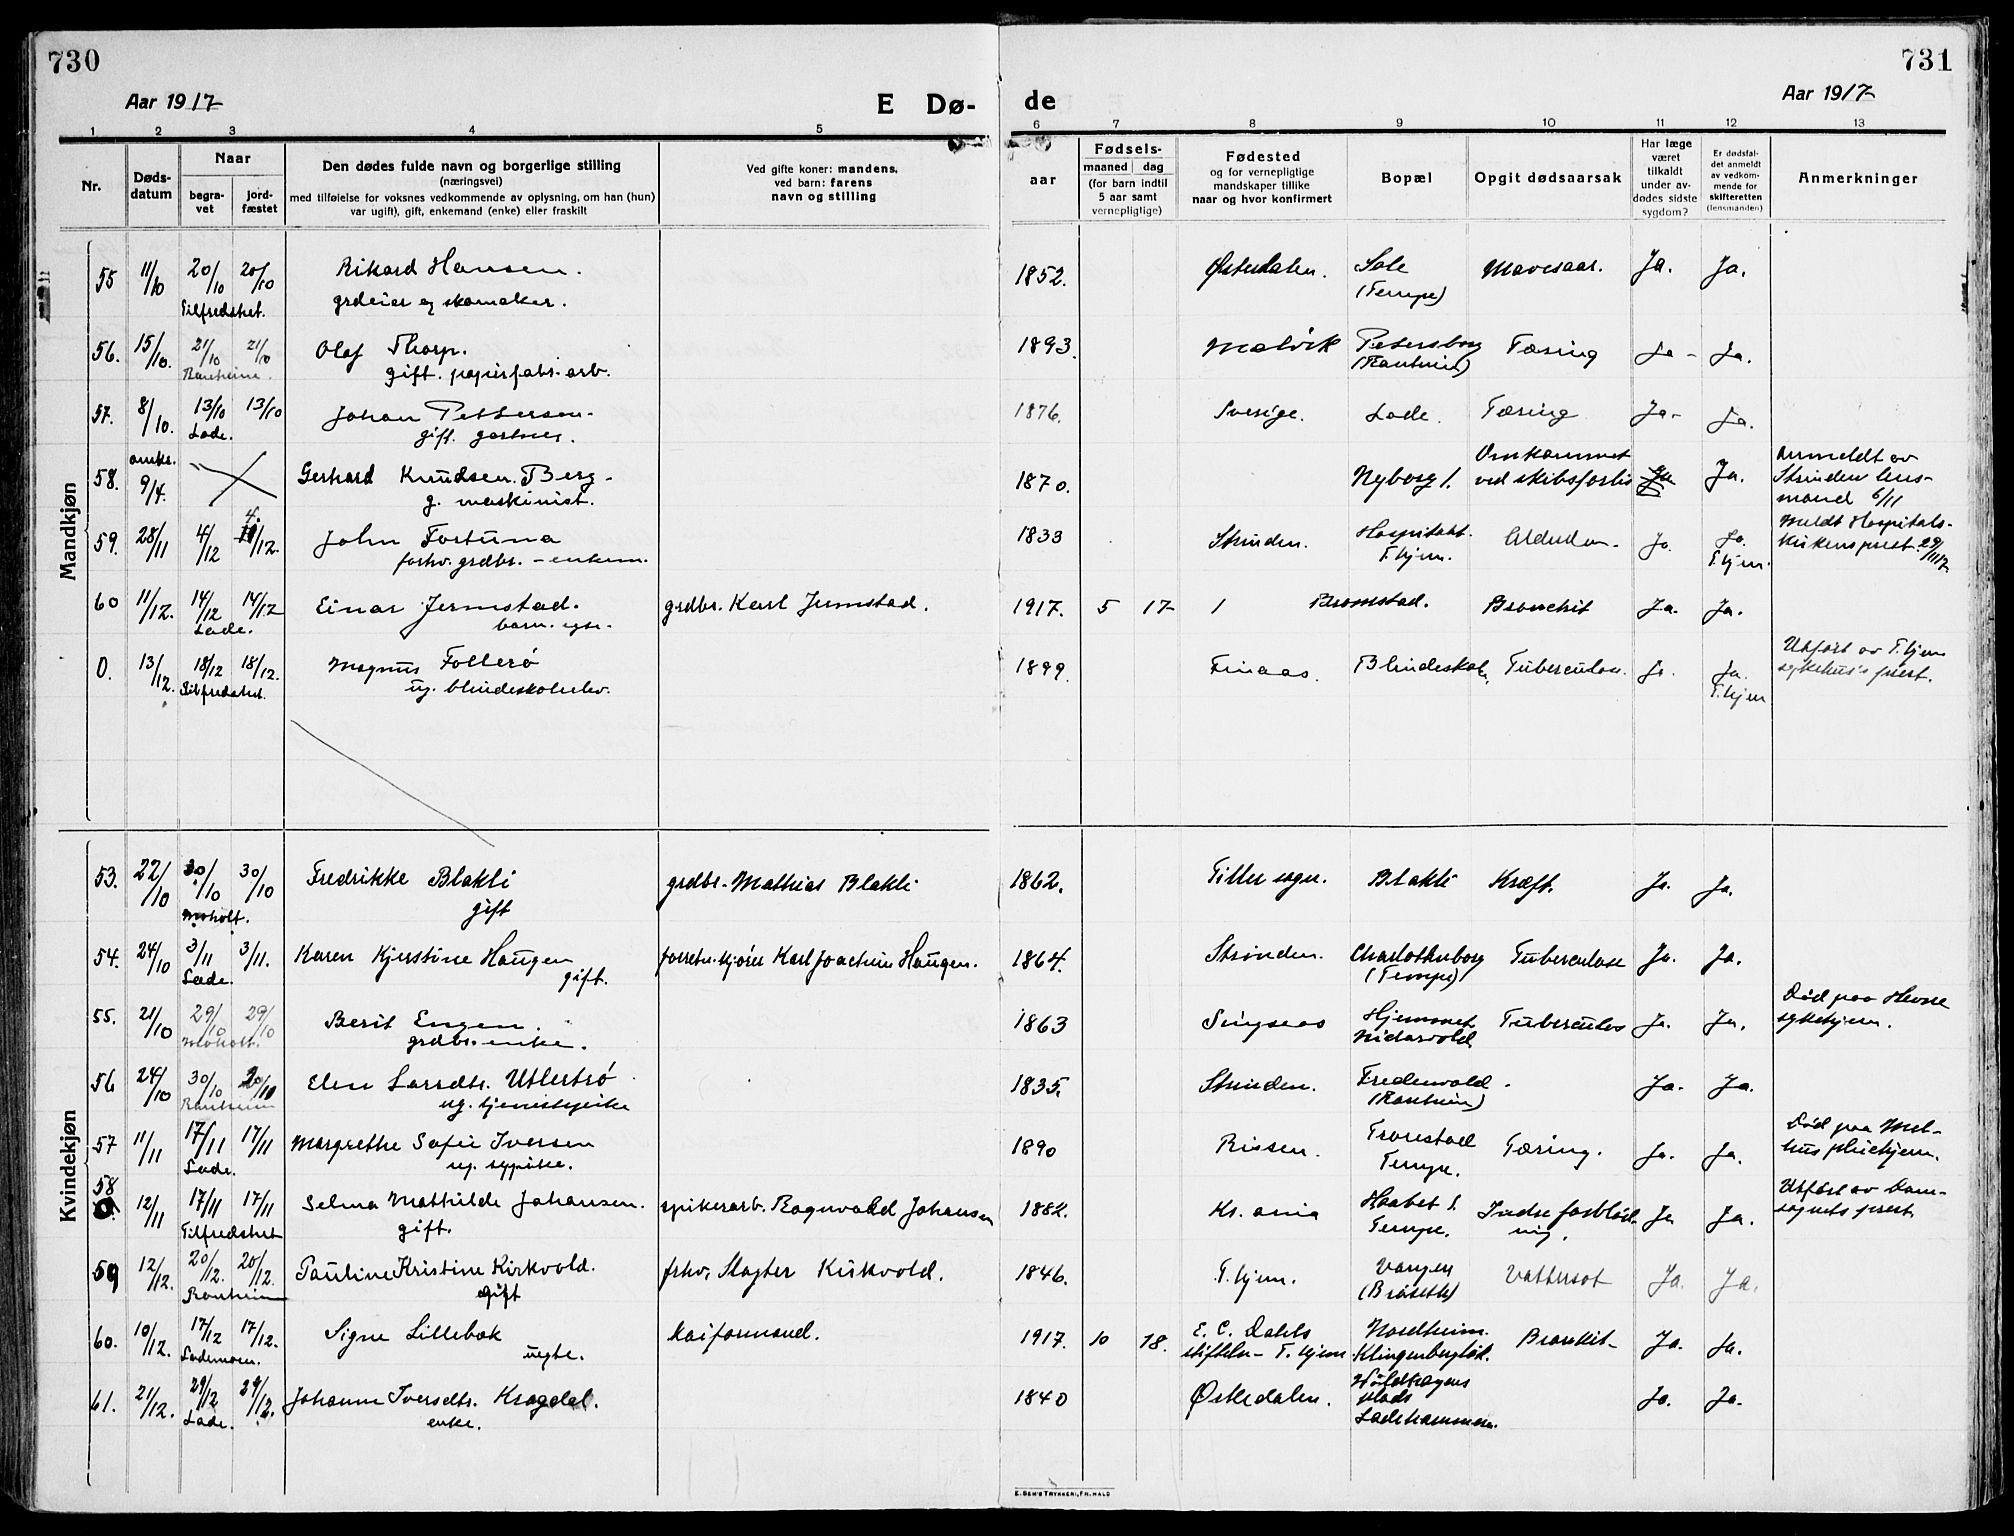 730
731
Aar 1917
E Dø-
de
Aar 1917
1 2 3 4 5 6 7 8 9 10 11 12 13
Nr.
Døds-
datum
Naar
begra-
vet
jord-
fæstet
Den dødes fulde navn og borgerlige stilling
(næringsvei)
med tilføielse for voksnes vedkommende av oplysning, om han (hun)
var ugift), gift, enkemand (enke) eller fraskilt
Ved gifte koner: mandens,
ved barn: farens
navn og stilling
aar
Fødsels-
maaned dag
(for barn indtil
5 aar samt
vernepligtige)
Fødested
og for vernepligtige
mandskaper tillike
naar og hvor konfirmert
Bopæl
Opgit dødsaarsak
Har læge
været
tilkaldt
under av-
dødes sidste
sygdom?
Er dødsfal-
det anmeldt
av vedkom-
mende for
skifteretten
(lensmanden)
Anmerkninger
Mandkjøn
55 11/10 20/10 20/10 Rikard Hansen. 1852. Østerdalen. Sole Mavesaar. Ja. Ja.
Tilfredshet. grdeier og skomaker. (Tempe)
56. 15/10. 21/10 21/10 Olaf Thorp. 1893. Malvik Petersborg Tæring Ja - Ja.
Ranheim. gift. papirfabr. arb. (Ranheim)
57. 8/10. 13/10 13/10 Johan Pettersen. 1876. Sverige. Lade. Tæring Ja- Ja.
Lade. gift. gartner.
58. omkr. 9/4. Gerhard Knudsen Berg. 1870. Nyborg l. Omkommet Ja Ja. Anmeldt av
g. maskinist. ved skibsforlis Strinden lens-
mand 6/11
59. 28/11 4/12 4/12. John Fortuna 1833 Strinden. Hospitalet. Alderdom. Ja. Ja. Meldt Hospitals-
forhv. grdbr. - enkem. T.hjem. T.hjem. kirkens prest 29/11 17
60 11/12. 14/12 14/12 Einar Jermstad. grdbr. Karl Jermstad. 1917. 5 17 / Bromstad. Bronchit Ja. Ja.
Lade. barn. egte.
0. 13/12. 18/12 18/12. Magnus Follerø 1899. Finaas. Blindeskole. Tuberculose. Ja. Ja. Utført av T.hjem
Tilfredshet. ug. blindeskoleelev. T.hjem sykehus's prest.
Kvindekjøn
53. 22/10 30/10 30/10 Fredrikke Blakli grdbr. Mathias Blakli 1862. Tiller sogn. Blakli Kræft. Ja. Ja.
Moholt. gift
54. 24/10 3/11 3/11. Karen Kjerstine Haugen forretn. kjører Karl Joachim Haugen. 1864. Strinden. Charlottenborg Tuberculose Ja. Ja.
Lade. gift. (Tempe)
55. 21/10 29/10 29/10 Berit Engen. 1863 Singsaas Hjemmet Tuberculos Ja. Ja. Død paa Hevne
Moholt. grdbr. enke. Nidarvold sykehjem.
56 24/10 30/10 30/10 Elen Larsdtr. Utlertrø 1835. Strinden. Fredenvold Ja. Ja.
Ranheim ug. tjenestepike (Ranheim)
57 11/11 17/11 17/11 Margrethe Sofie Iversen 1890 Rissen. Tronestad Tæring. Ja. Ja. Død paa Mel-
Lade. ug. sypike. Tempe. hus pleiehjem.
58 12/11 17/11 17/11 Selma Mathilde Johansen. spikerarb. Ragnvald Johansen 1882. Kr.ania Haabet l. Indre forblød- Ja Ja. Utført av Dom-
Tilfredshet gift. Tempe. ning. sognets prest.
59 12/12. 20/12. 20/12. Pauline Kristine Kirkvold. frhv. Slagter Kirkvold. 1846. T.hjem. Vangen Vattersot Ja. Ja.
Ranheim gift (Brøsette)
60. 10/12. 17/12 17/12. Signe Lillebak kaiformand. 1917. 10 18. E. C. Dahls Nordheim. Bronkit- Ja. Ja.
Lademoen. uegte. stiftelse - T.hjem Klingenbergløk.
61. 21/12. 29/12 29/12. Johanne Iversdtr. Kragdal. 1840 Østerdalen. plads Ja. Ja.
Lade. enke. Ladehammeren.
E. SEM'S TRYKKERI, FR.HALD